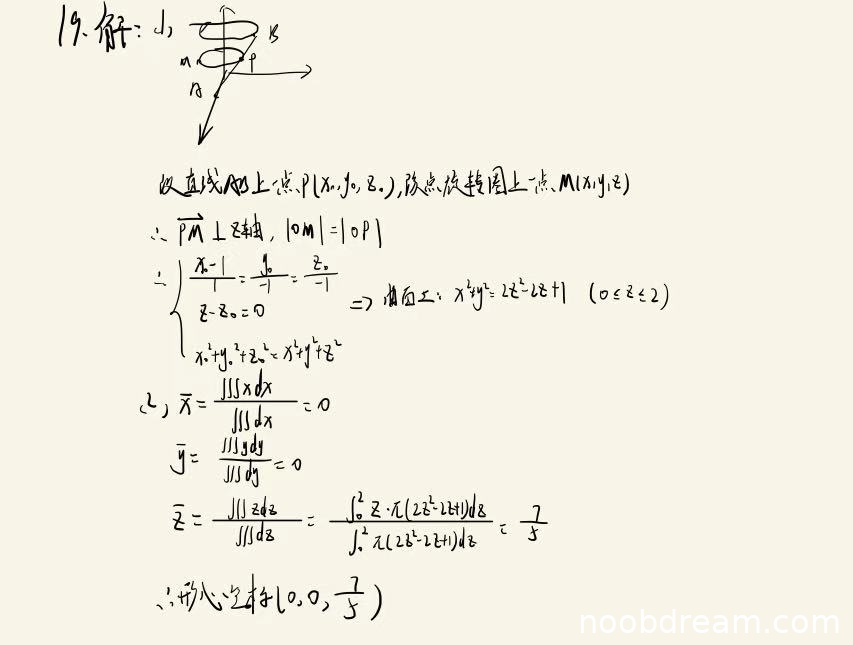 19. 解: 1,
B
M
P
A
设直线AB上一点P(x₀, y₀, z₀), 该点旋转圈上一点M(x, y, z)
∴ PM ⊥ z轴, |OM| = |OP|
∴ { (x₀-1)/1 = y₀/-1 = z₀/-1
z - z₀ = 0
x₀²+y₀²+z₀² = x²+y²+z²
=> 曲面Σ: x²+y² = 2z²-2z+1 (0≤z≤2)
2, x̄ = ∭xdx / ∭dx = 0
ȳ = ∭ydy / ∭dy = 0
z̄ = ∭zdz / ∭dz = ∫₀² z·π(2z²-2z+1)dz / ∫₀² π(2z²-2z+1)dz = 7/5
∴形心坐标(0, 0, 7/5)
noobdream.com